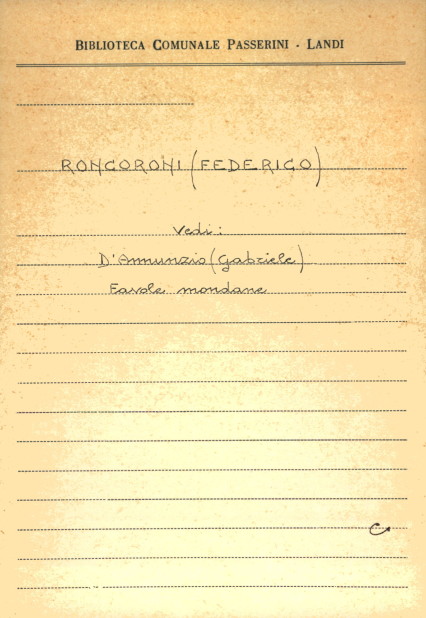 BIBLIOTECA COMUNALE PASSERINI - LANDI
RONCORONI (FEDERICO)
Vedi:
D'Annunzio (Gabriele)
Favole mondane